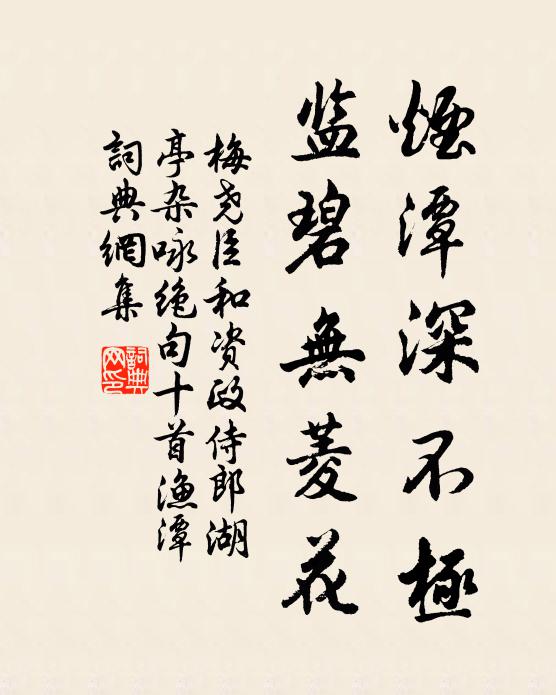 煙潭深不極
监碧無菱花
梅尧臣和资政侍郎湖
亭杂咏绝句十首渔潭
詞典網集
詞典网印